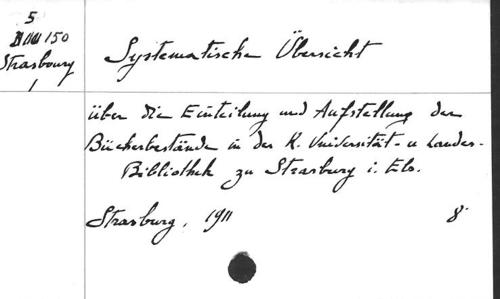 5
150
Strasbourg
1
Systematische Übersicht
über die Einteilung und Aufstellung der
Bücherbestände in der K. Universität- u Landes-
Bibliothek zu Strasburg i. Els.
Strasburg, 1911 8°